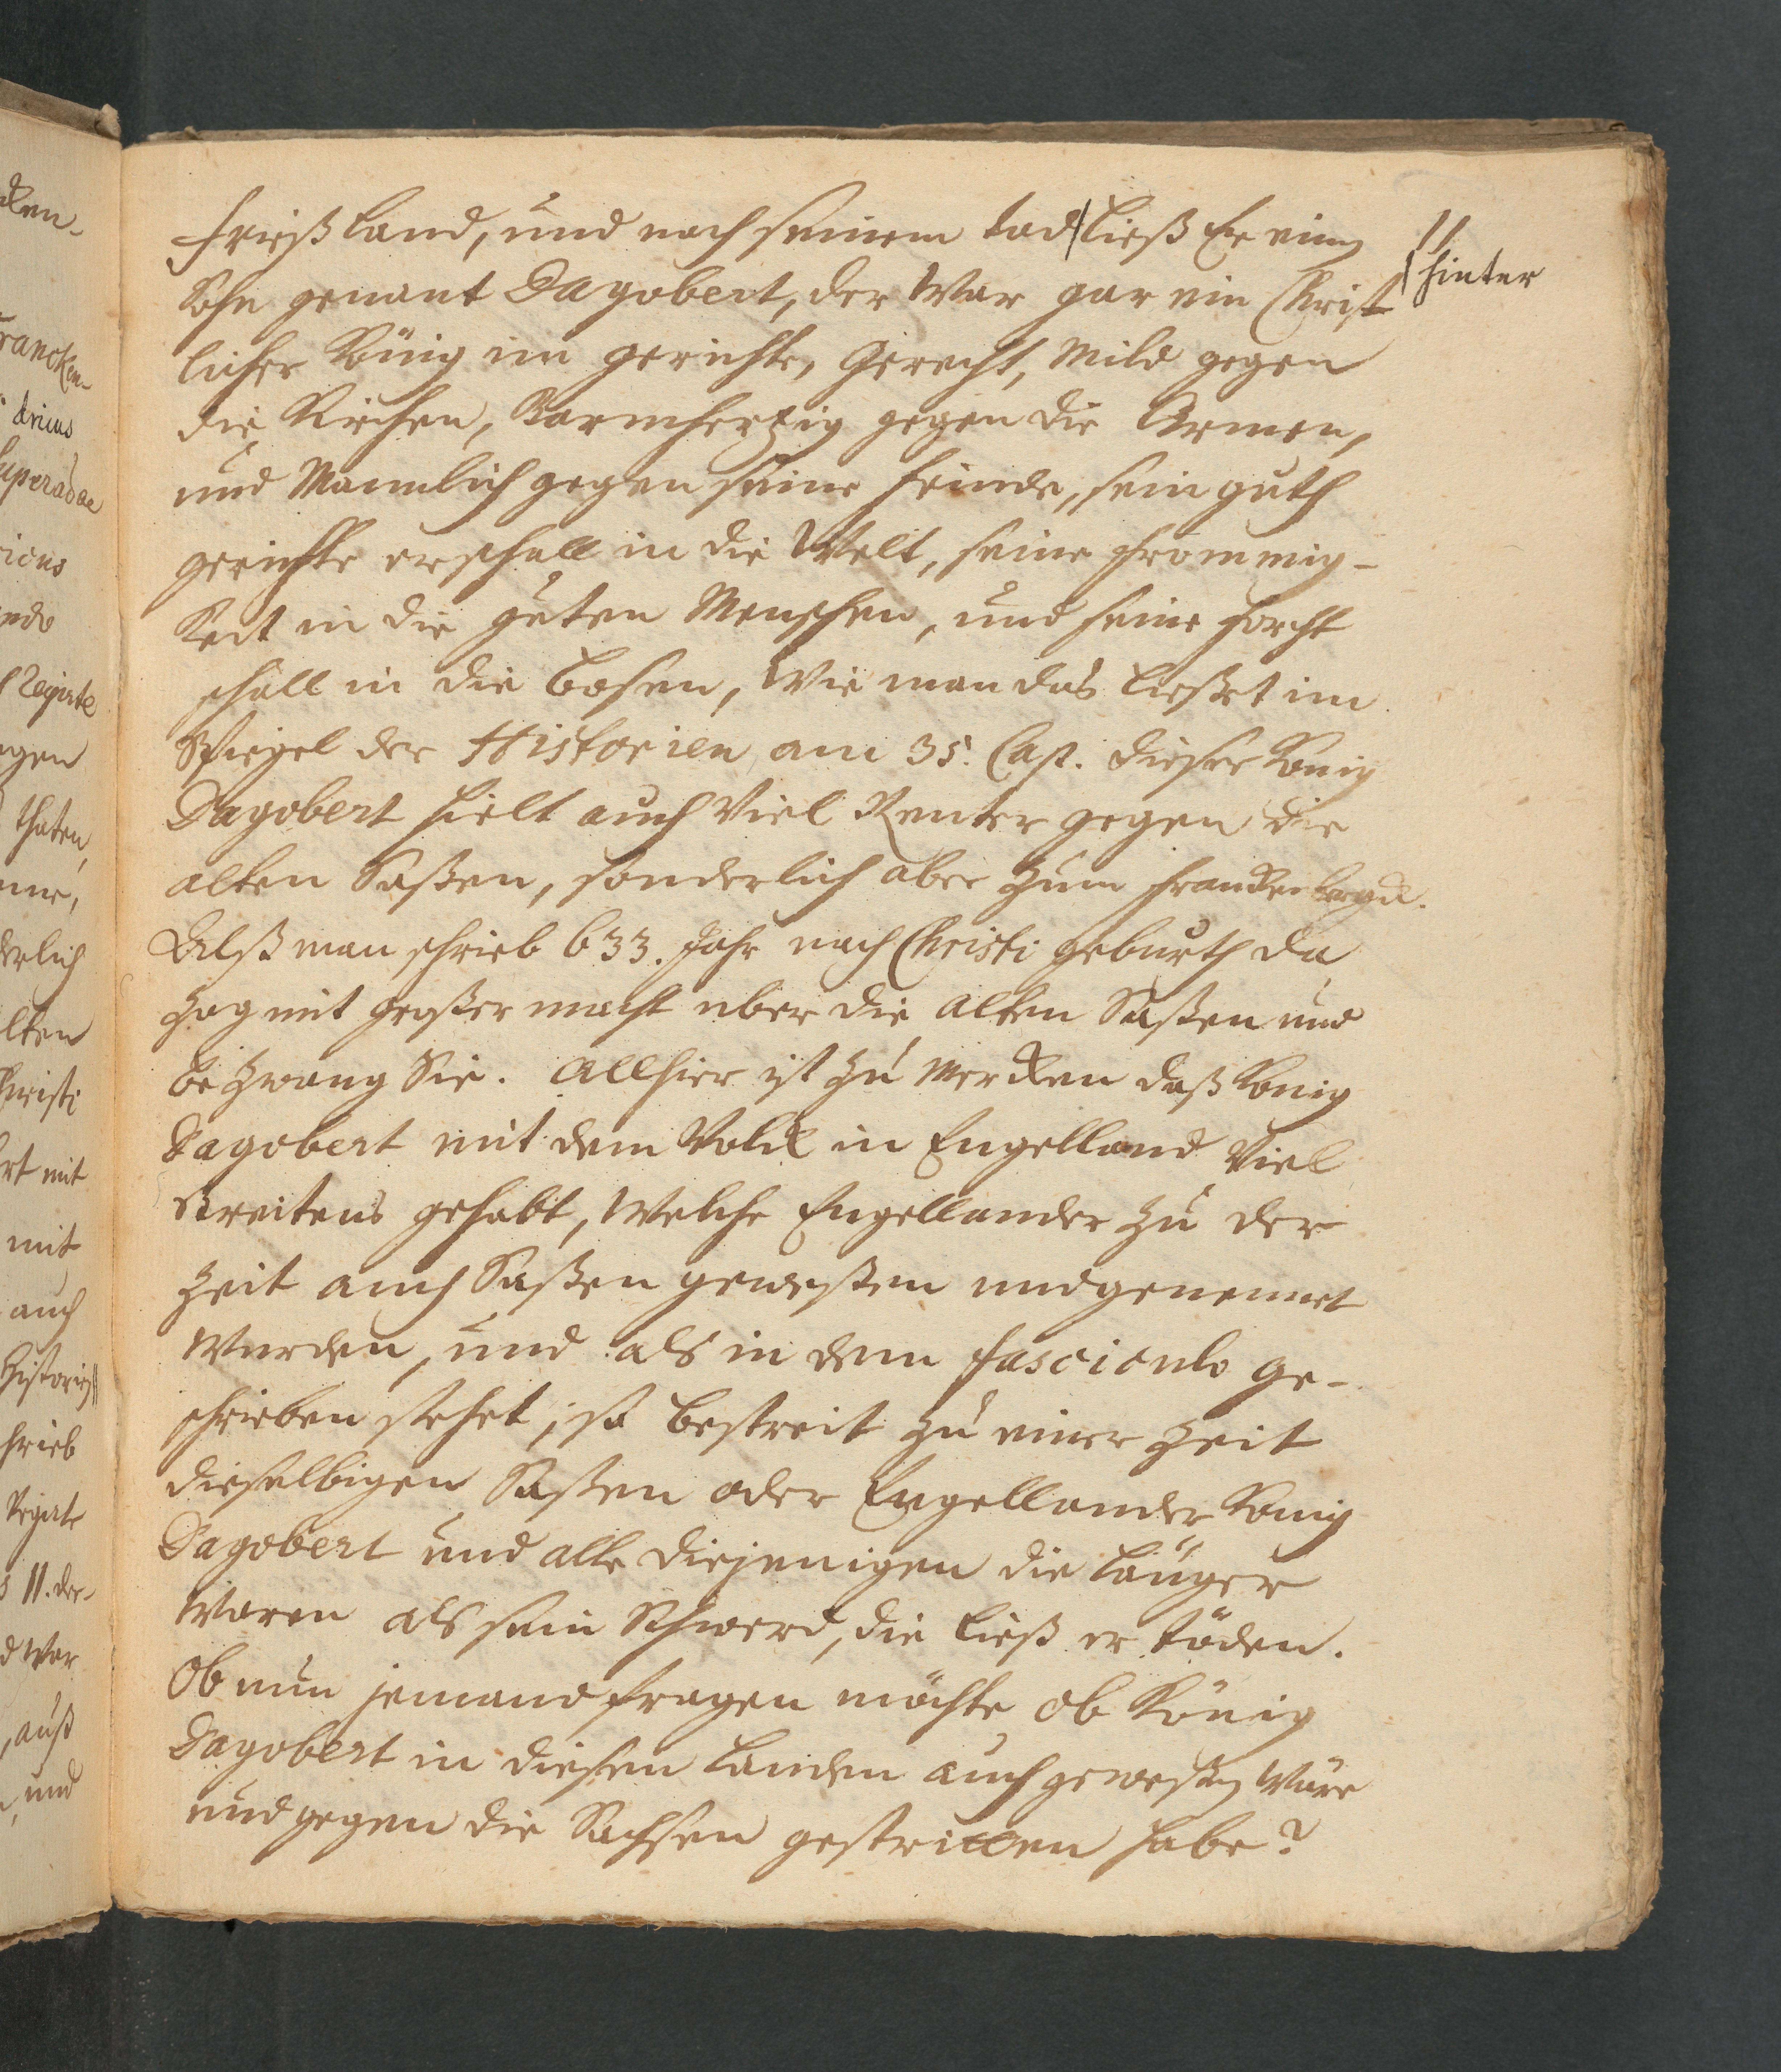 11
Frießland, und nach seinem tod | ließ Er einen
| hinter
Sohn genant Dagobert, der War gar ein Christ
licher König im gerichte, Gerecht, Mild gegen
die Kirchen, Barmhertzig gegen die Armen,
und Mannlich gegen seine feinde, sein guth
gerichte erschall in die Welt, seine frommig-
Keit in die guten Menschen, und seine forcht
schall in die bosen, Wie man das ließet im
Spiegel der Historien am 35. Cap. dieser Konig
Dagobert hielt auch Viel Renter gegen die
alten Saßen, sonderlich aber zum franckenbergk.
Alß man schrieb 633. Jahr nach Christi geburth da
zog mit großer macht uber die alten Saßen und
bezwang Sie. Allhier ist zu mercken daß Konig
Dagobert mit dem Volck in Engelland Viel
streitens gehabt, Welche Engellander zu der
Zeit auch Saßen geweßen und genennet
Wurden, und als in dem fasciculo ge-
schrieben stehet, so bestreit zu einer Zeit
dieselbigen Saßen oder Engellander Konig
Dagobert und alle diejenigen die länger
Waren als sein Schwerd, die ließ er töden.
Ob nun jemand fragen möchte ob König
Dagobert in diesen Landen auch geweßen Wäre
und gegen die Sachsen gestritten habe?